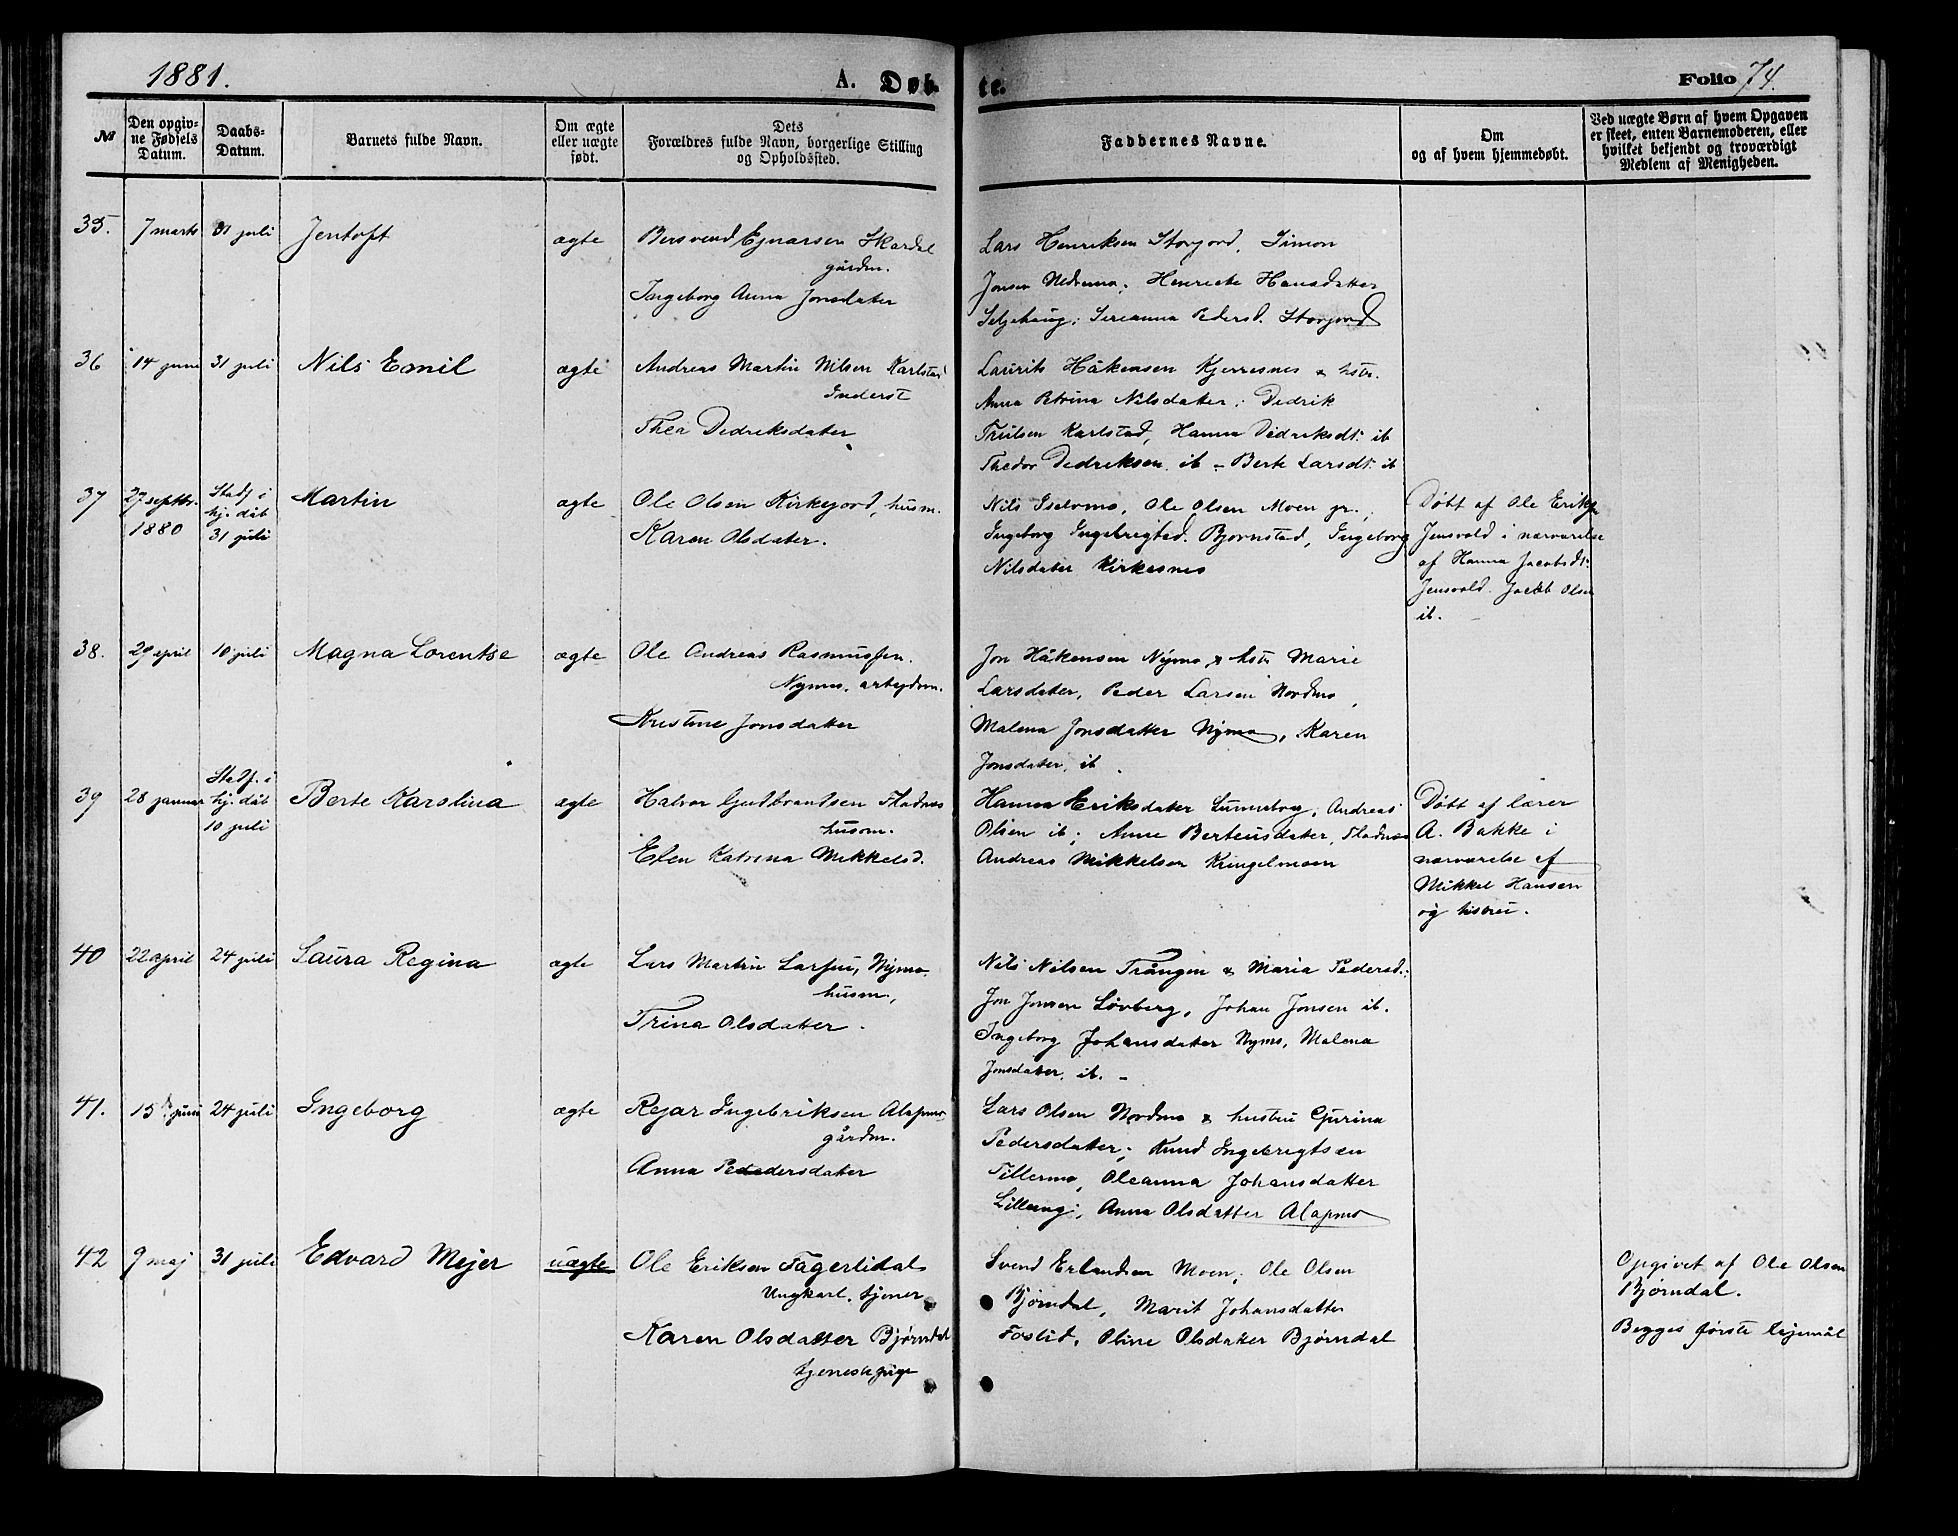 1881. A. Døb- te. Folio 74.
№ Den opgivne Fødsels Datum. Daabs-Datum. Barnets fulde Navn. Om ægte eller uægte født. Dets Forældres fulde Navn, borgerlige Stilling og Opholdssted. Faddernes Navne. Om og af hvem hjemmedøbt. Ved uægte Børn af hvem Opgaven er skeet, enten Barnemoderen, eller hvilket bekjendt og troværdigt Medlem af Menigheden.
35. 7 marts 31 juli Jentoft ægte Bersvend Ejnarsen Skardal
gårdm.
Ingeborg Anna Jonsdater
Lars Henriksen Storjord, Simon
Jonsen Nedremo, Henriete Hansdatter
Seljehaug; Sereanna Pedersd. Storjord
36 14 juni 31 juli Nils Emil ægte Andreas Martin Nilsen Karlstad
Inderst
Thea Dedriksdater
Laurits Håkensen Kjerresnes & hstr.
Anna Petrina Nilsdatter; Dedrik
Trulsen Karlstad, Hanna Dedriksdt. ib
Thedor Dedriksen ib - Berte Larsdt. ib
37 27 septbr. 1880 Stadf. i hj. dåb 31 juli Martin ægte Ole Olsen Kirkejord, husm.
Karen Olsdater.
Nils Iselvmo, Ole Olsen Moen jr.,
Ingeborg Ingebrigtsd. Bjørnstad, Ingeborg
Nilsdater Kirkesnes
Døbt af Ole Eriksen
Jensvold i nærværelse
af Hanna Jacobsdt.
Jensvold. Jacob Olsen
ib.
38. 29 april 10 juli Magna Lorentse ægte Ole Andreas Rasmussen.
Nymo, arbejdsm.
Kristine Jonsdatter
Jon Håkensen Nymo & hstr Marie
Larsdater, Peder Larsen Nordmo,
Malena Jonsdatter Nymo, Karen
Jonsdater, ib.
39 28 januar Stadf. i hj. dåb 10 juli Berte Karolina ægte Halvor Gudbrandsen Fladnes
husm.
Elen Katrina Mikkelsd.
Hanna Eriksdater Sunneborg, Andreas
Olsen ib; Anne Berteusdater, Fladnes
Andreas Mikkelsen Kringelmoen
Døbt af lærer
A. Bakke i
nærværelse af
Mikkel Hansen
og hustru.
40 22 april 24 juli Laura Regina ægte Lars Martin Larsen, Nymo
husm,
Trina Olsdatter.
Nils Nilsen Trången & Maria Pedersd.;
Jon Jonsen Løvberg, Johan Jonsen ib.
Ingeborg Johansdatter Nymo, Malena
Jonsdater, ib. -
41. 15 juni 24 juli Ingeborg ægte Rejar Ingebriksen Alapmo
gårdm.
Anna Pededersdater
Lars Olsen Nordmo & hustru Gjurina
Pedersdatter; Knud Ingebrigtsen
Tillermo, Oleanna Johansdatter
Lilleng; Anna Olsdatter Alapmo
42 9 maj 31 juli Edvard Mejer uægte Ole Eriksen Fagerlidal
Ungkarl, tjener
Karen Olsdatter Bjørndal
tjenestepige
Svend Erlandsen Moen; Ole Olsen
Bjørndal, Marit Johansdatter
Foslid, Oline Olsdater Bjørndal
Opgivet af Ole Olsen
Bjørndal.
Begges første lejemål